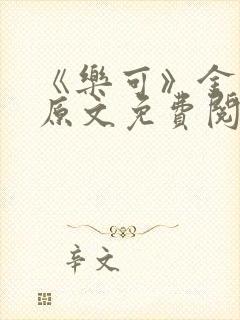 《樂可》金
原文免費閱
辛文